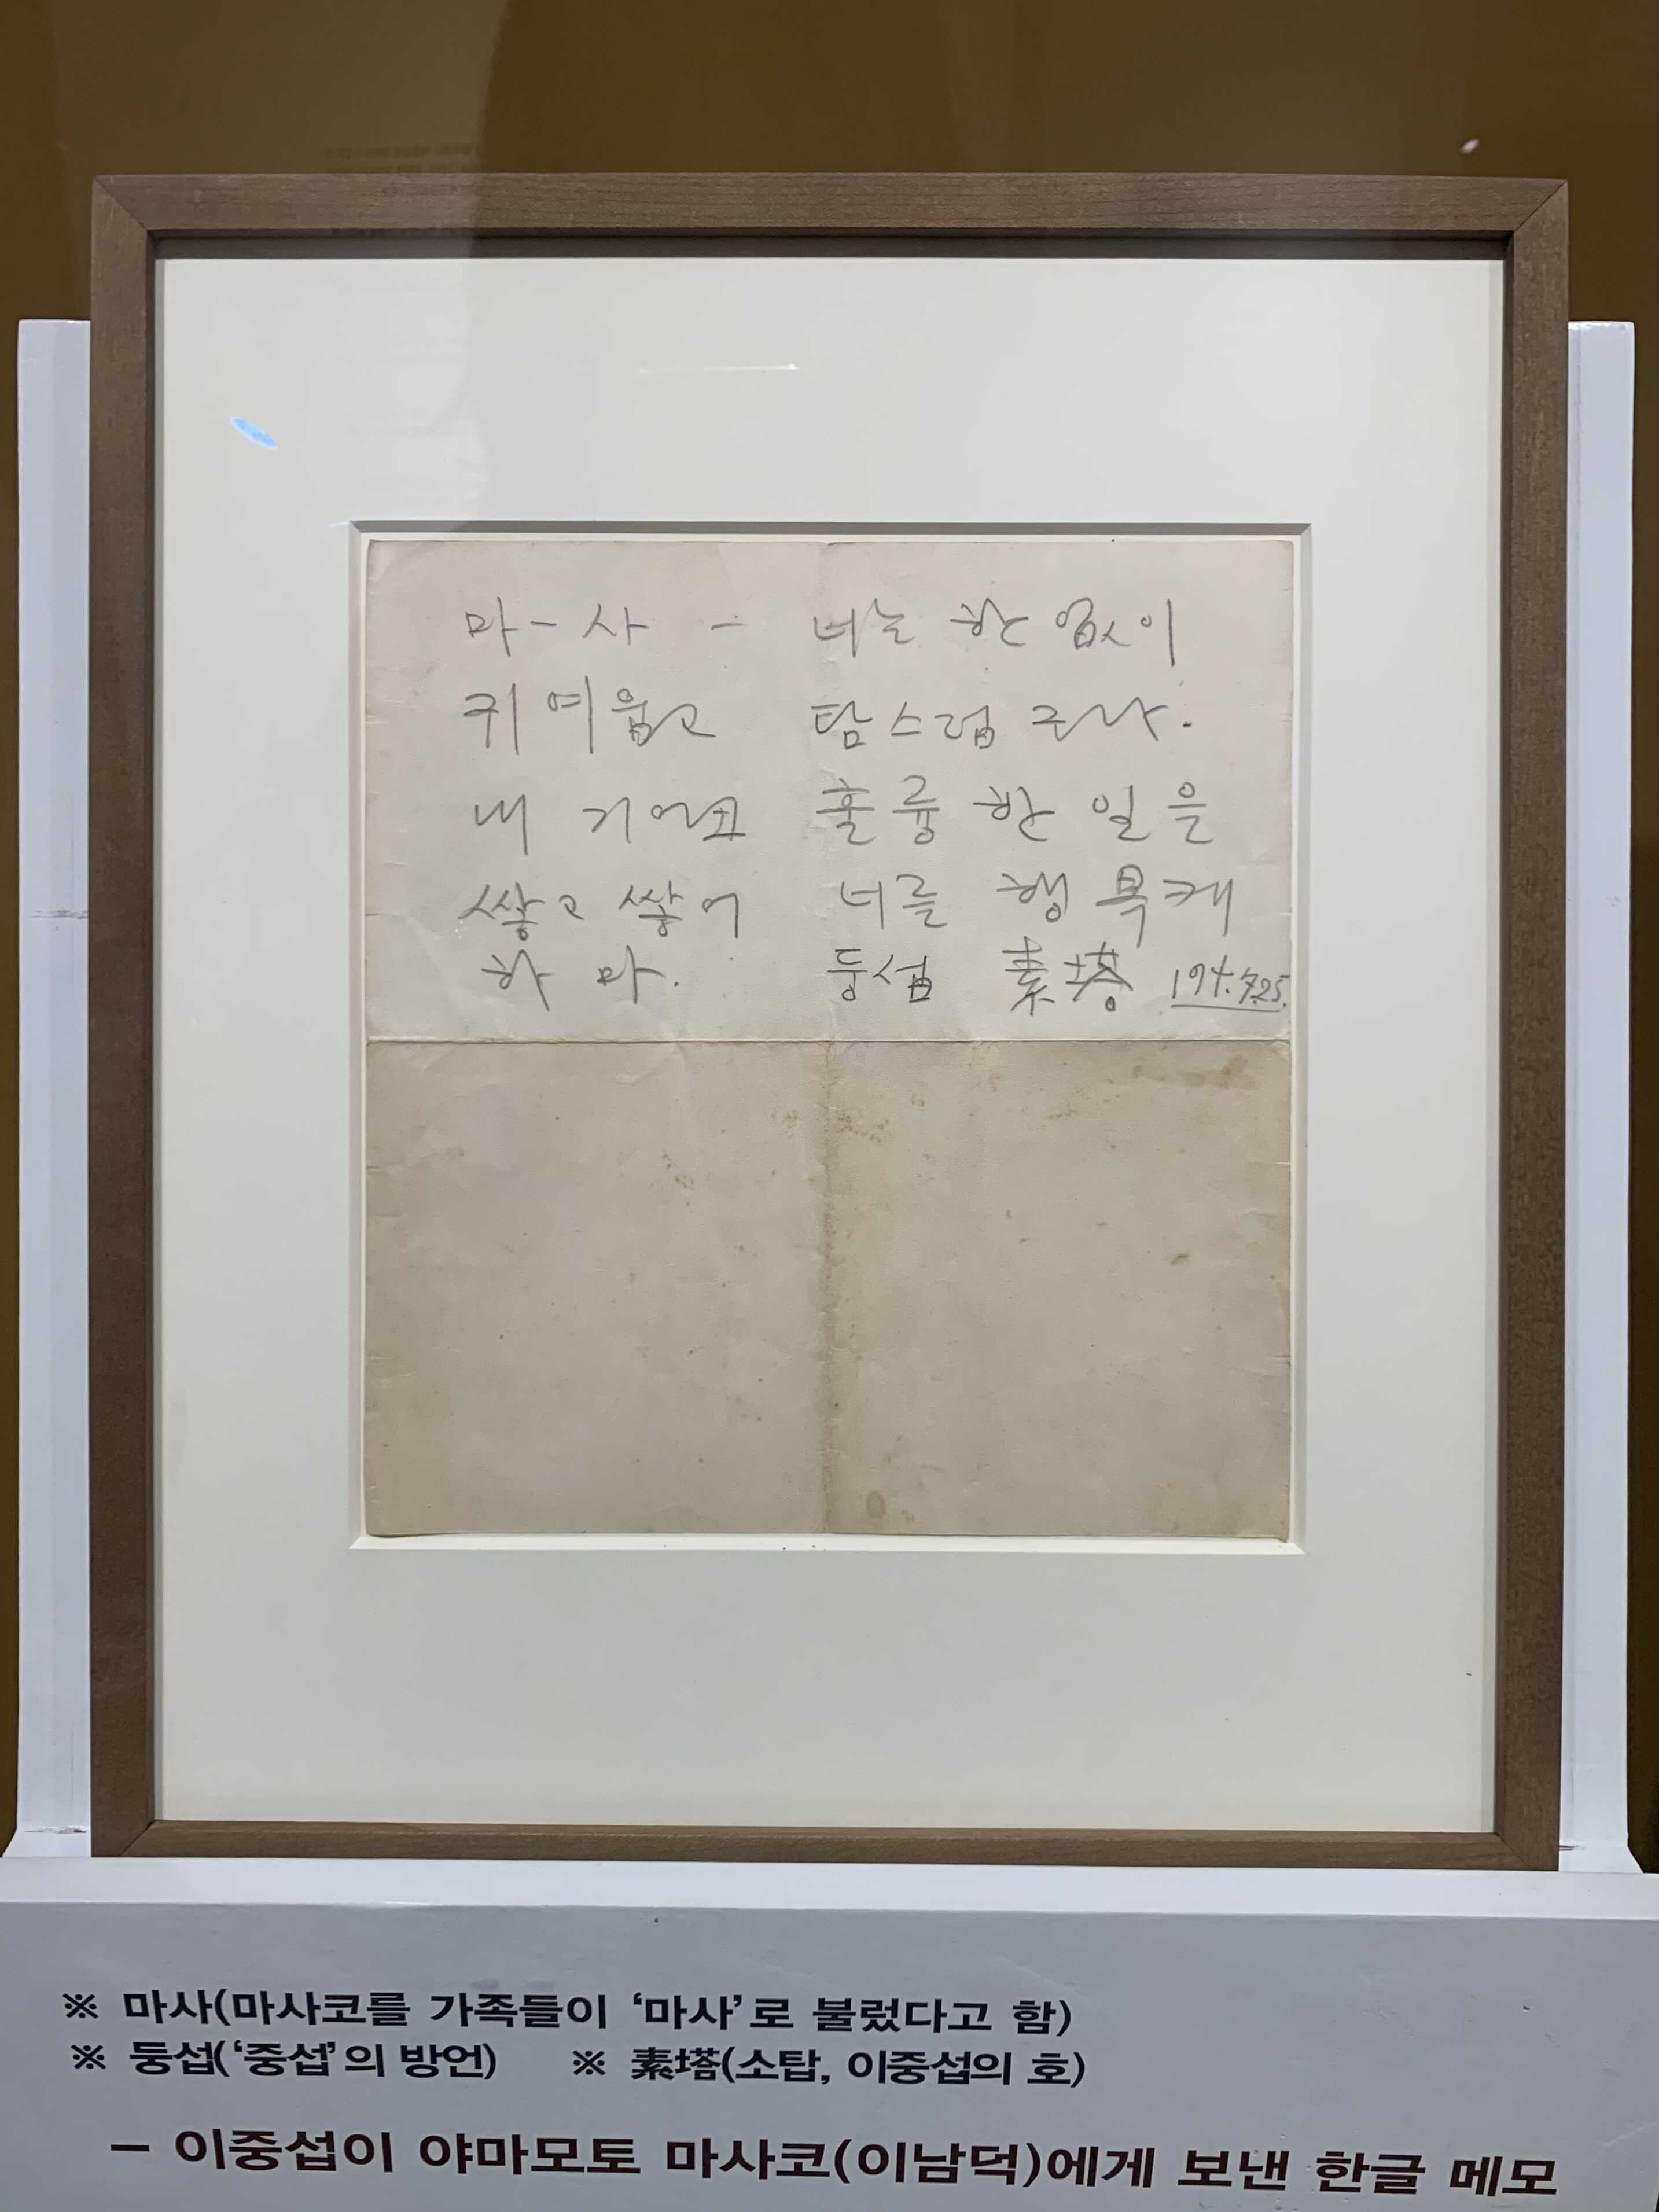 마-사 - 너는 한 없이
귀여웁고 탐스럽구나.
내 기어코 훌륭한 일을
쌓고 쌓어 너를 행복케
하마. 둥섭 素塔
※ 마사(마사코를 가족들이 ‘마사’로 불렀다고 함)
※ 둥섭(‘중섭’의 방언) ※ 素塔(소탑, 이중섭의 호)
– 이중섭이 야마모토 마사코(이남덕)에게 보낸 한글 메모